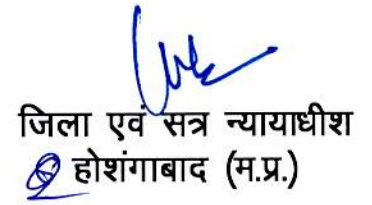 जिला एवं सत्र न्यायाधीश
होशंगाबाद (म.प्र.)